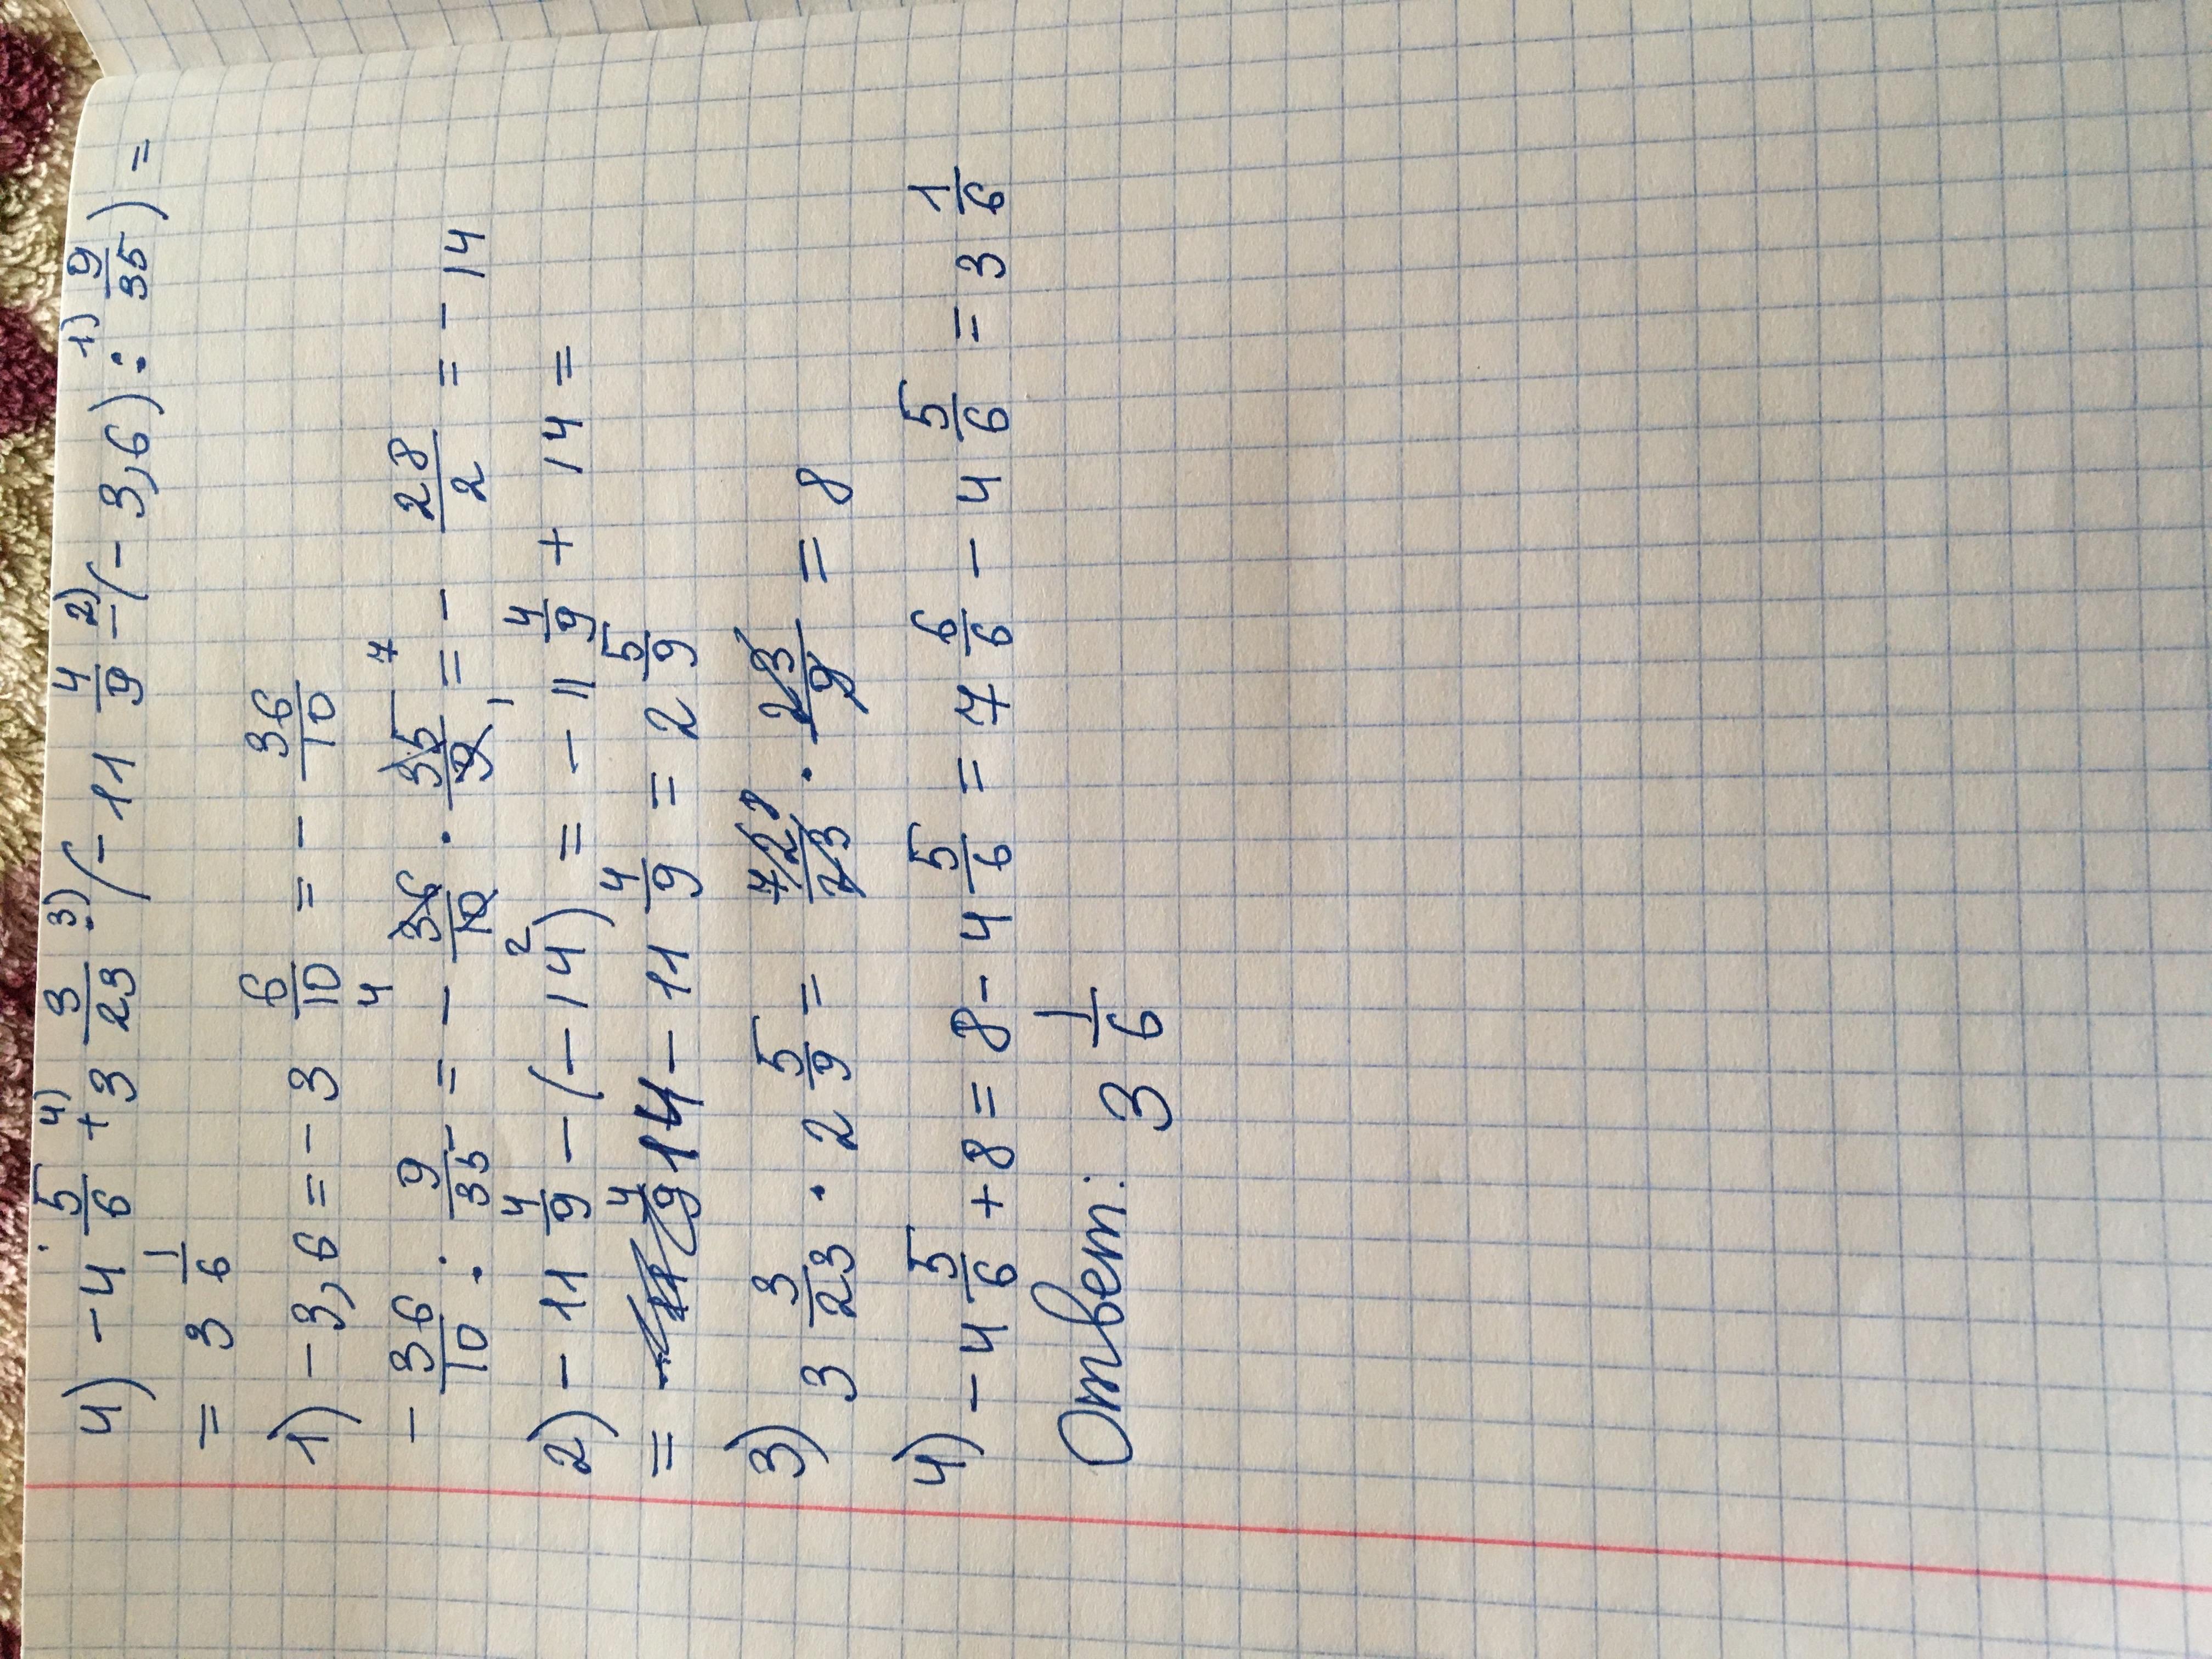 4) -4 5/6 +⁴⁾ 3 3/23 ·³⁾ (-11 4/9 -²⁾ (-3,6) :¹⁾ 9/35) =
= 3 1/6
1) -3,6 = -3 6/10 = - 36/10
- 36/10 : 9/35 = - 36⁴/10₂ · 35⁷/9₁ = - 28/2 = -14
2) -11 4/9 - (-14) = -11 4/9 + 14 =
= 14 - 11 4/9 = 2 5/9
3) 3 3/23 · 2 5/9 = 72⁸/23 · 23/9 = 8
4) -4 5/6 + 8 = 8 - 4 5/6 = 7 6/6 - 4 5/6 = 3 1/6
Ответ: 3 1/6